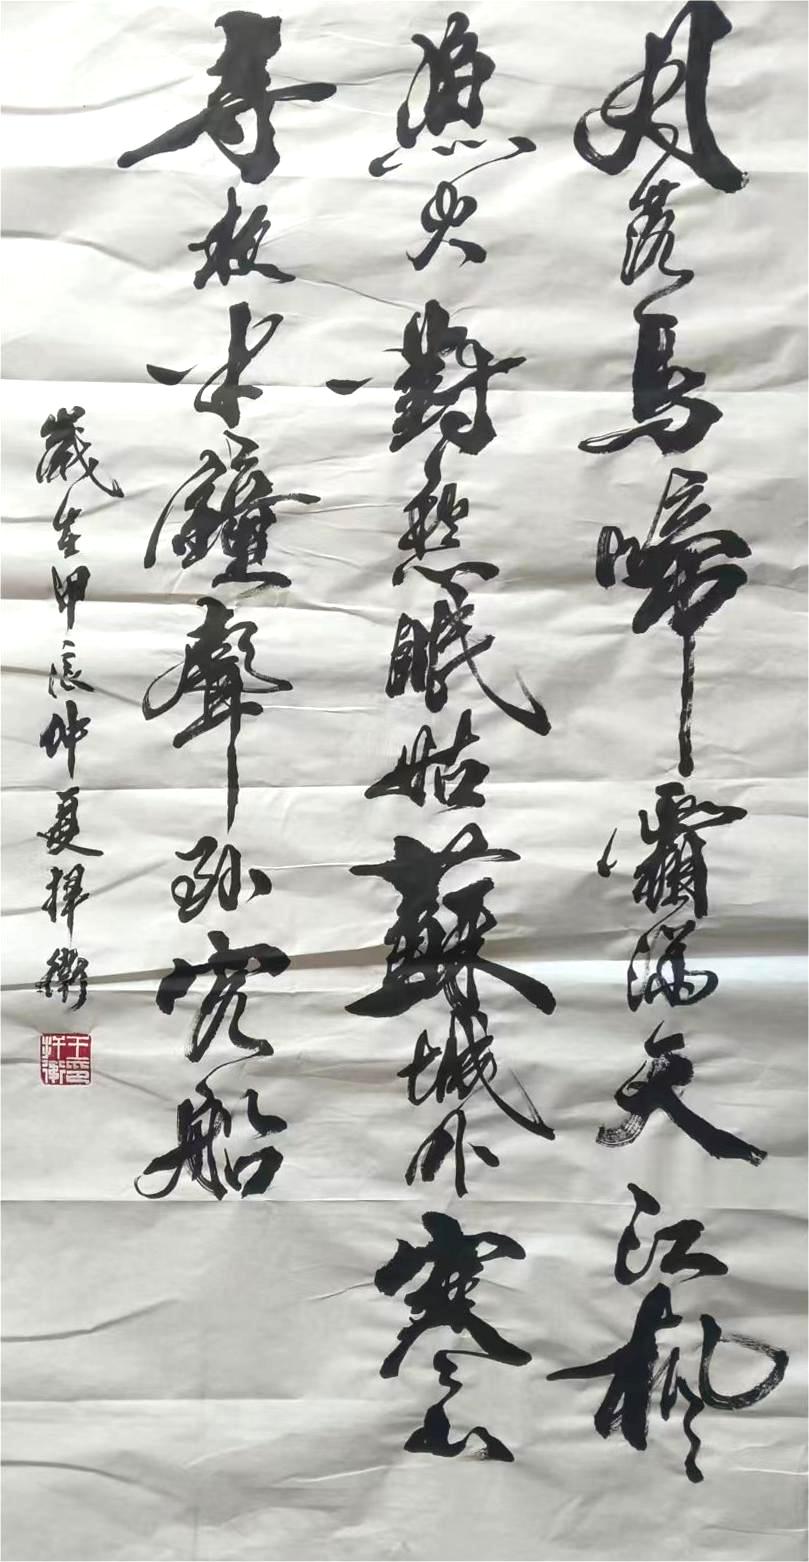 月落烏啼霜滿天江楓
漁火對愁眠姑蘇城外寒山
寺夜半鐘聲到客船
歲在甲辰仲夏